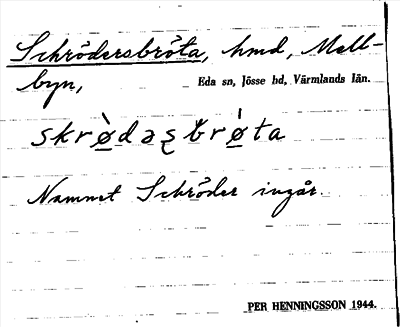 Schrödersbröta, hmd, Mell-
byn, Eda sn, Jösse hd, Värmlands län.
skrø̀dəʂbrǿta
Namnet Schröder ingår.
PER HENNINGSSON 1944.